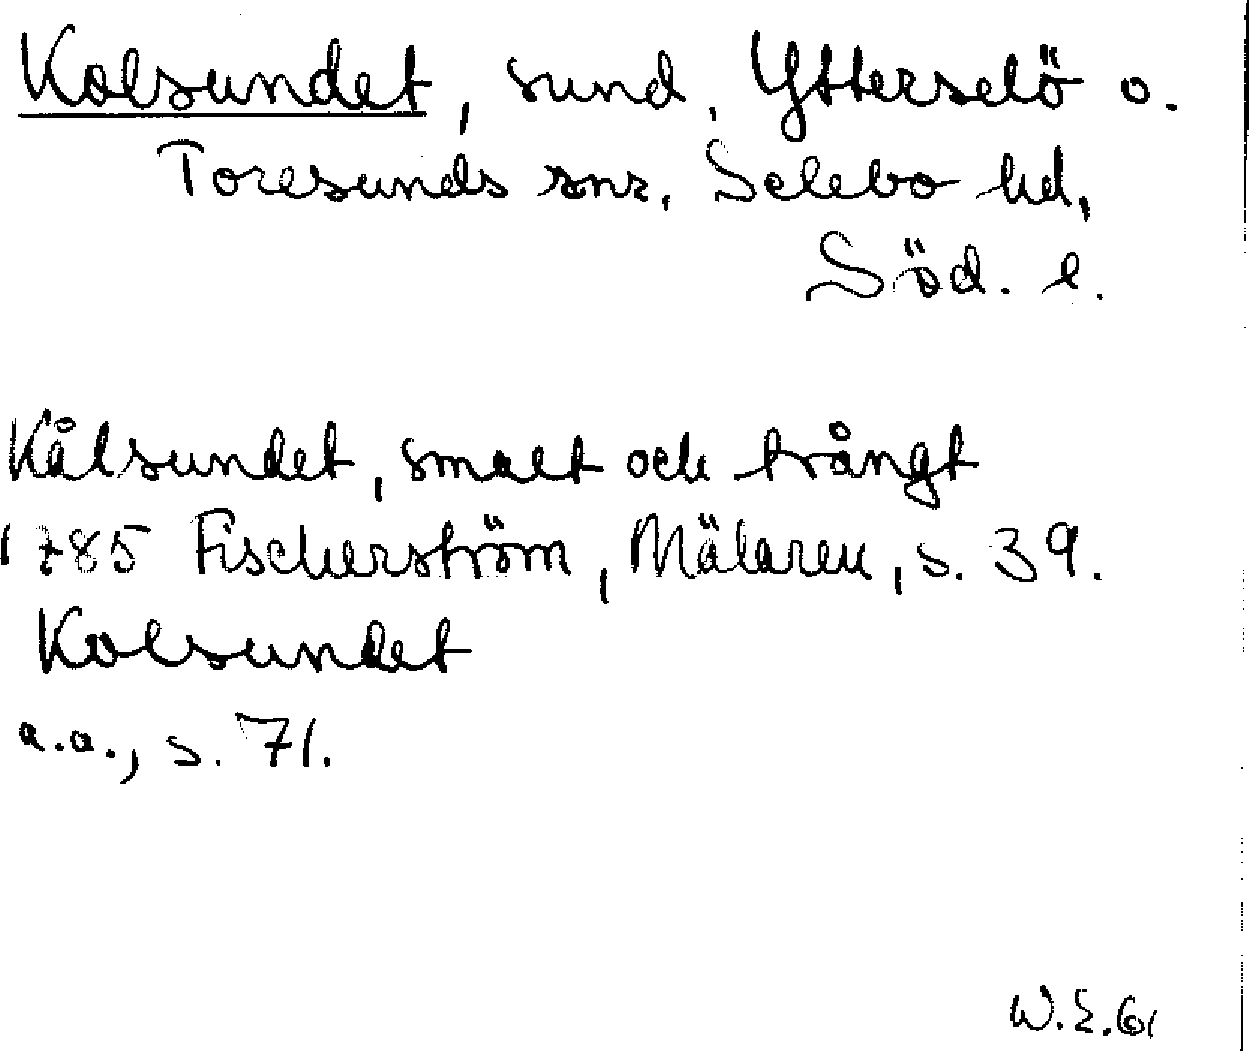 Kolsundet, sund, Ytterselö o.
Toresunds snr, Selebo hd,
Söd. l.
Kålsundet, smalt och trångt
1785 Fischerström, Mälaren, s. 39.
Kolsundet
a.a., s. 71.
W.E.61